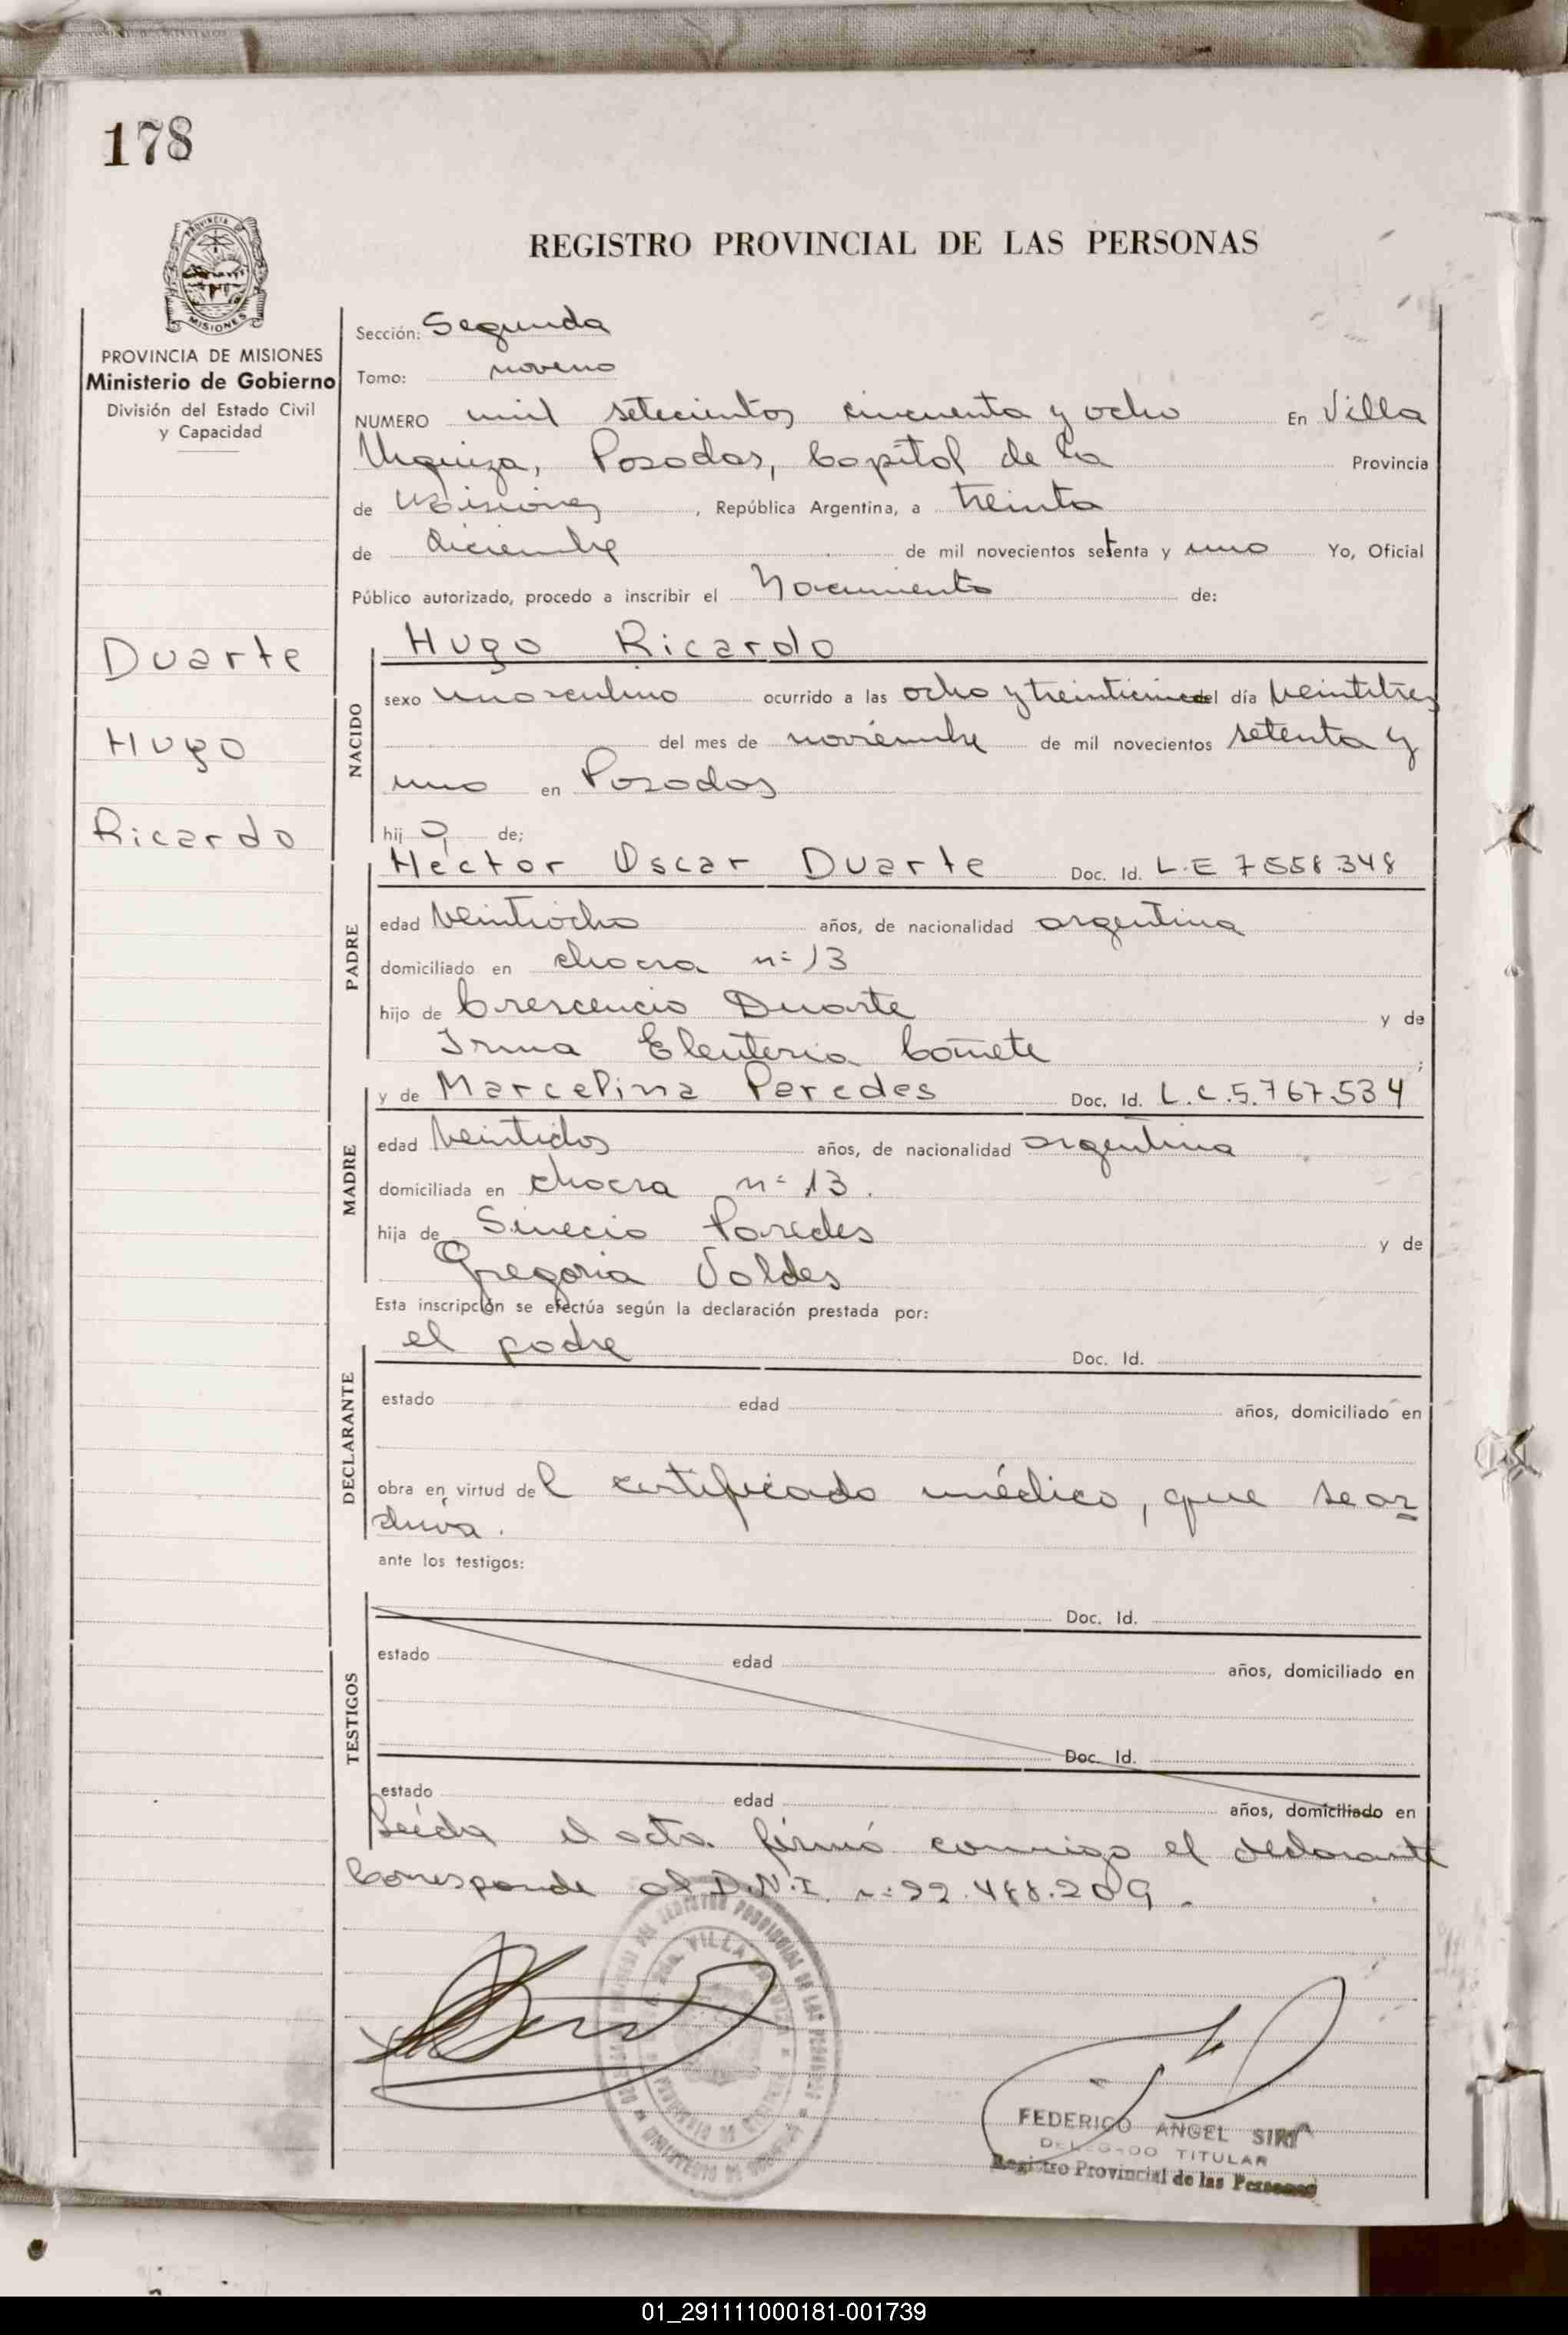 178
PROVINCIA
MISIONES
REGISTRO PROVINCIAL DE LAS PERSONAS
PROVINCIA DE MISIONES
Ministerio de Gobierno
División del Estado Civil
y Capacidad
Duarte
Hugo
Ricardo
Sección: Segunda
Tomo: noveno
NUMERO mil setecientos cincuenta y ocho En Villa
Urquiza, Posadas, Capital de la Provincia
de Misiones, República Argentina, a treinta
de diciembre de mil novecientos setenta y uno Yo, Oficial
Público autorizado, procedo a inscribir el Nacimiento de:
NACIDO
Hugo Ricardo
sexo masculino ocurrido a las ocho y del día veintitres
del mes de noviembre de mil novecientos setenta y
uno en Posadas
hijo de;
PADRE
Héctor Oscar Duarte Doc. Id. L.E 7558.348
edad veintiocho años, de nacionalidad argentina
domiciliado en chacra n= 13
hijo de Crescencio Duarte y de
Irma Eleuteria Cañete ;
MADRE
y de Marcelina Paredes Doc. Id. L.C.5.767.534
edad veintidos años, de nacionalidad argentina
domiciliada en chacra n= 13.
hija de Sinecio Paredes y de
Gregoria Valdes
Esta inscripción se efectúa según la declaración prestada por:
DECLARANTE
el padre Doc. Id.
estado edad años, domiciliado en
obra en virtud del certificado médico, que se ar=
chiva.
ante los testigos:
TESTIGOS
Doc. Id.
estado edad años, domiciliado en
Doc. Id.
estado edad años, domiciliado en
Leída el acta firmó conmigo el declarante
Corresponde al D.N.I. n= 22.488.209.
FEDERICO ANGEL SIRY
DELEGADO TITULAR
Registro Provincial de las Personas
01_291111000181-001739